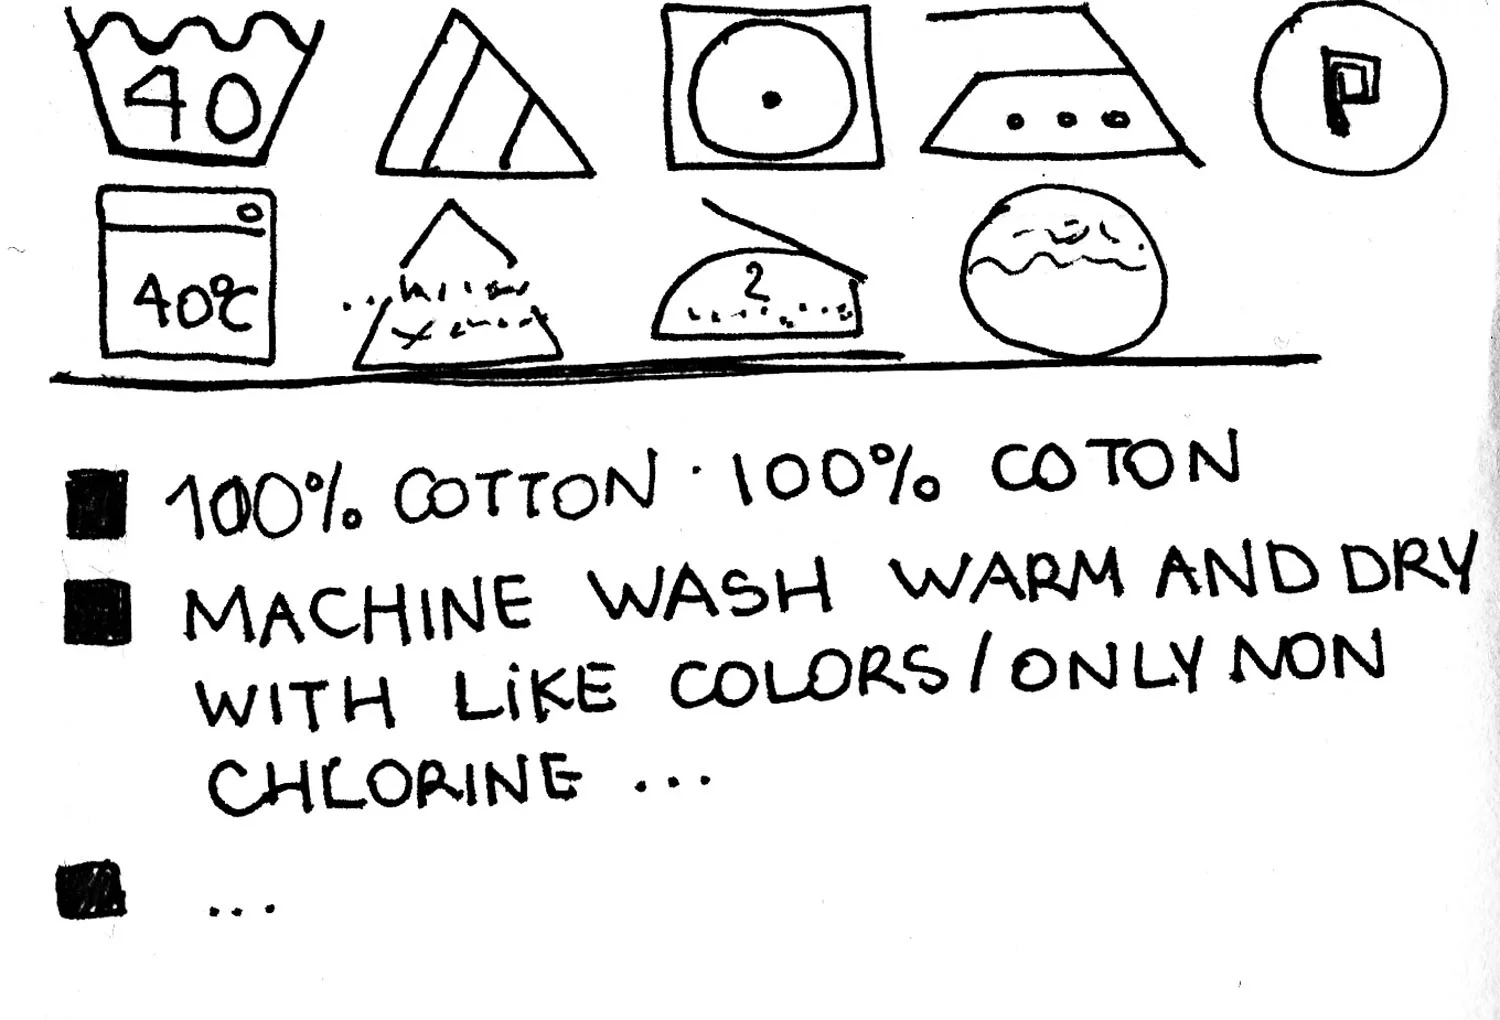 40
P
40°C
2
100% COTTON · 100% COTON
MACHINE WASH WARM AND DRY
WITH LIKE COLORS/ONLY NON
CHLORINE ...
...